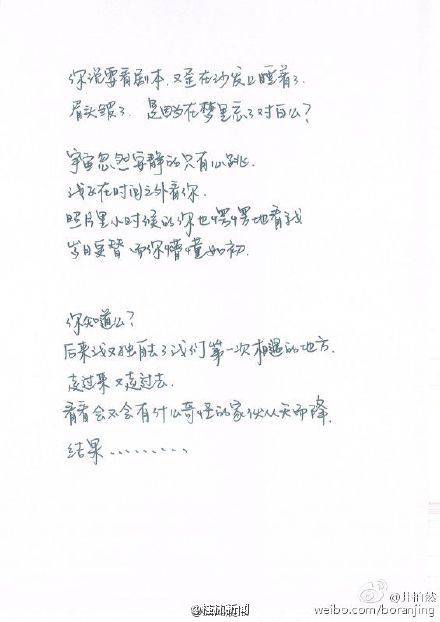 你说要看剧本，又歪在沙发上睡着了.
眉头皱了. 是因为在梦里忘了对白么？
宇宙忽然安静的只有心跳.
我不在时间之外看你.
照片里小时候的你也愣愣地看我
岁月更替 而你懵懂如初.
你知道么？
后来我又独自去了我们第一次相遇的地方.
走过来又走过去.
看看会不会有什么奇怪的家伙从天而降.
结果..........
@桂林新闻
@井柏然
weibo.com/boranjing